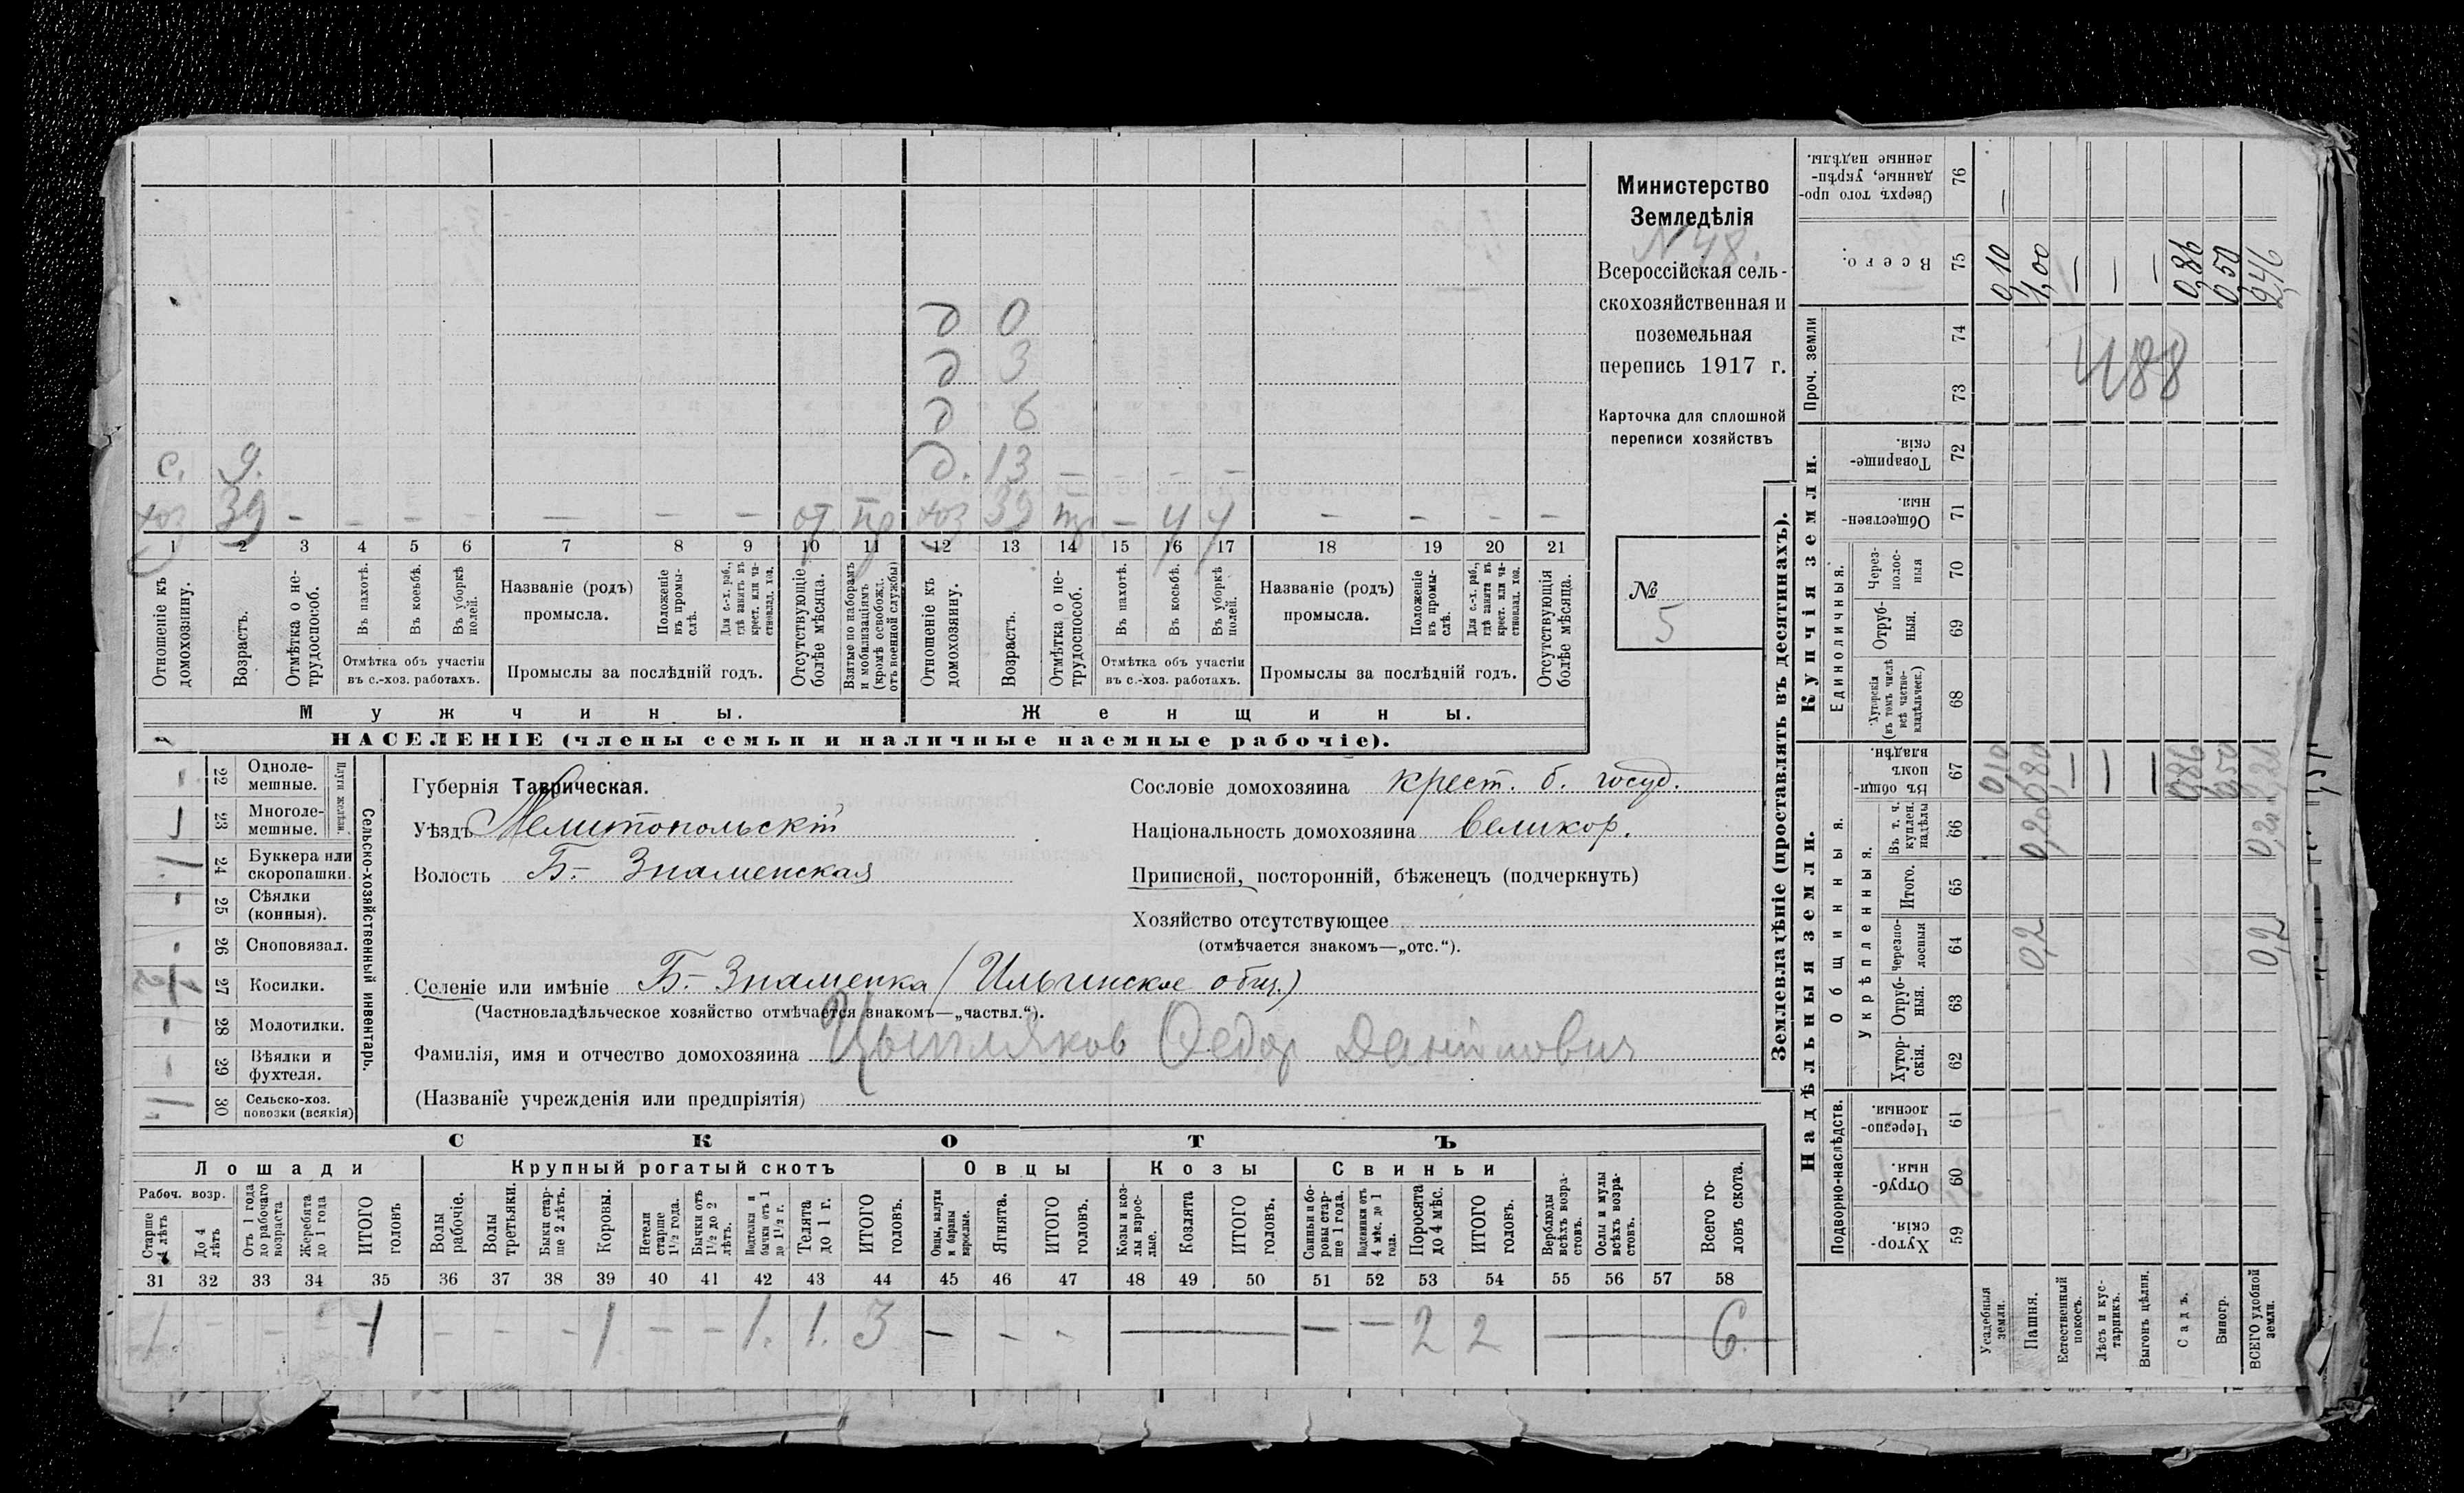 Министерство
Земледѣлія
N 48.
Всероссійская сель-
скохозяйственная и
поземельная
перепись 1917 г.
Карточка для сплошной
переписи хозяйствъ
№
5
д 0
д 3
д 6
с. 9. д. 13 — - - -
хоз 39 - - - - — — — от. пр хоз 39 — Ч Ч — - - —
1 2 3 4 5 6 7 8 9 10 11 12 13 14 15 16 17 18 19 20 21
Отношеніе къ домохозяину.
Возрастъ.
Отмѣтка о не-трудоспособ.
Въ пахотѣ.
Въ косьбѣ.
Въ уборкѣ полей.
Отмѣтка объ участіи въ с.-хоз. работахъ.
Названіе (родъ) промысла.
Положеніе въ промы-слѣ.
Для с.-х. раб., гдѣ занятъ въ крест. или ча-стновлад. хоз.
Промыслы за послѣдній годъ.
Отсутствующіе болѣе мѣсяца.
Взятые по наборамъ и мобилизаціямъ (кромѣ освобожд. отъ военной службы)
Отношеніе къ домохозяину.
Возрастъ.
Отмѣтка о не-трудоспособ.
Въ пахотѣ.
Въ косьбѣ.
Въ уборкѣ полей.
Отмѣтка объ участіи въ с.-хоз. работахъ.
Названіе (родъ) промысла.
Положеніе въ промы-слѣ.
Для с.-х. раб., гдѣ занята въ крест. или ча-стновлад. хоз.
Промыслы за послѣдній годъ.
Отсутствующія болѣе мѣсяца.
Мужчины. Женщины.
НАСЕЛЕНІЕ (члены семьи и наличные наемные рабочіе).
Сельско-хозяйственный инвентарь.
Плуги желѣзн.
22 Одноле-мешные.
23 Многоле-мешные.
24 Буккера или скоропашки.
25 Сѣялки (конныя).
26 Сноповязал.
27 Косилки.
28 Молотилки.
29 Вѣялки и фухтеля.
30 Сельско-хоз. повозки (всякія)
Губернія Таврическая.
Уѣздъ Мелитопольскій
Волость Б.- Знаменская
Сословіе домохозяина крест. б. госуд.
Національность домохозяина великор.
Приписной, посторонній, бѣженецъ (подчеркнуть)
Хозяйство отсутствующее
(отмѣчается знакомъ—„отс.“).
Селеніе или имѣніе Б.- Знаменка (Ильинское общ.)
(Частновладѣльческое хозяйство отмѣчается знакомъ—„частвл.“).
Фамилія, имя и отчество домохозяина Цыпляков Федор Данилович
(Названіе учрежденія или предпріятія)
СКОТЪ
Лошади Крупный рогатый скотъ Овцы Козы Свиньи
Рабоч. возр.
Старше 4 лѣтъ
До 4 лѣтъ
Отъ 1 года до рабочаго возраста
Жеребята до 1 года
ИТОГО головъ
Волы рабочіе.
Волы третьяки.
Быки стар-ше 2 лѣтъ.
Коровы.
Нетели старше 1½ года.
Бычки отъ 1½ до 2 лѣтъ.
Подтелки и бычки отъ 1 до 1½ г.
Телята до 1 г.
ИТОГО головъ.
Овцы, валухи и бараны взрослые.
Ягнята.
ИТОГО головъ.
Козы и коз-лы взрос-лые.
Козлята
ИТОГО головъ.
Свиньи и бо-ровы стар-ше 1 года.
Подсвинки отъ 4 мѣс. до 1 года.
Поросята до 4 мѣс.
ИТОГО головъ.
Верблюды всѣхъ возра-стовъ.
Ослы и мулы всѣхъ возра-стовъ.
Всего го-ловъ скота.
31 32 33 34 35 36 37 38 39 40 41 42 43 44 45 46 47 48 49 50 51 52 53 54 55 56 57 58
1. - - - 1 - - - 1 - - 1. 1. 3 — - - — — — 2 2 — 6.
Землевладѣніе (проставлять въ десятинахъ).
Надѣльныя земли. Купчія земли. Проч. земли
Подворно-наслѣдств. Общинныя. Единоличныя.
Укрѣпленныя.
Хутор-скія. 59
Отруб-ныя. 60
Черезпо-лосныя. 61
Хутор-скія. 62
Отруб-ныя. 63
Черезпо-лосныя 64
Итого. 65
Въ т. ч. куплен. надѣлы 66
Въ общин-номъ владѣн. 67
Хуторскія (въ томъ числѣ всѣ частно-владѣльческ.) 68
Отруб-ныя. 69
Через-полос-ныя 70
Обществен-ныя. 71
Товарище-скія. 72
73
74
Всего. 75
Сверхъ того про-данные, укрѣп-ленные надѣлы. 76
Усадебныя земли. 0,10 0,10 —
Пашня. 0,2 0,20 0,80 1,00
Естественный покосъ. — —
Лѣсъ и кус-тарникъ. — —
Выгонъ цѣлин. — —
Садъ. 0,86 0,86
Виногр. 0,50 0,50
ВСЕГО удобной земли. 0,2 0,20 2,26 2,46
488